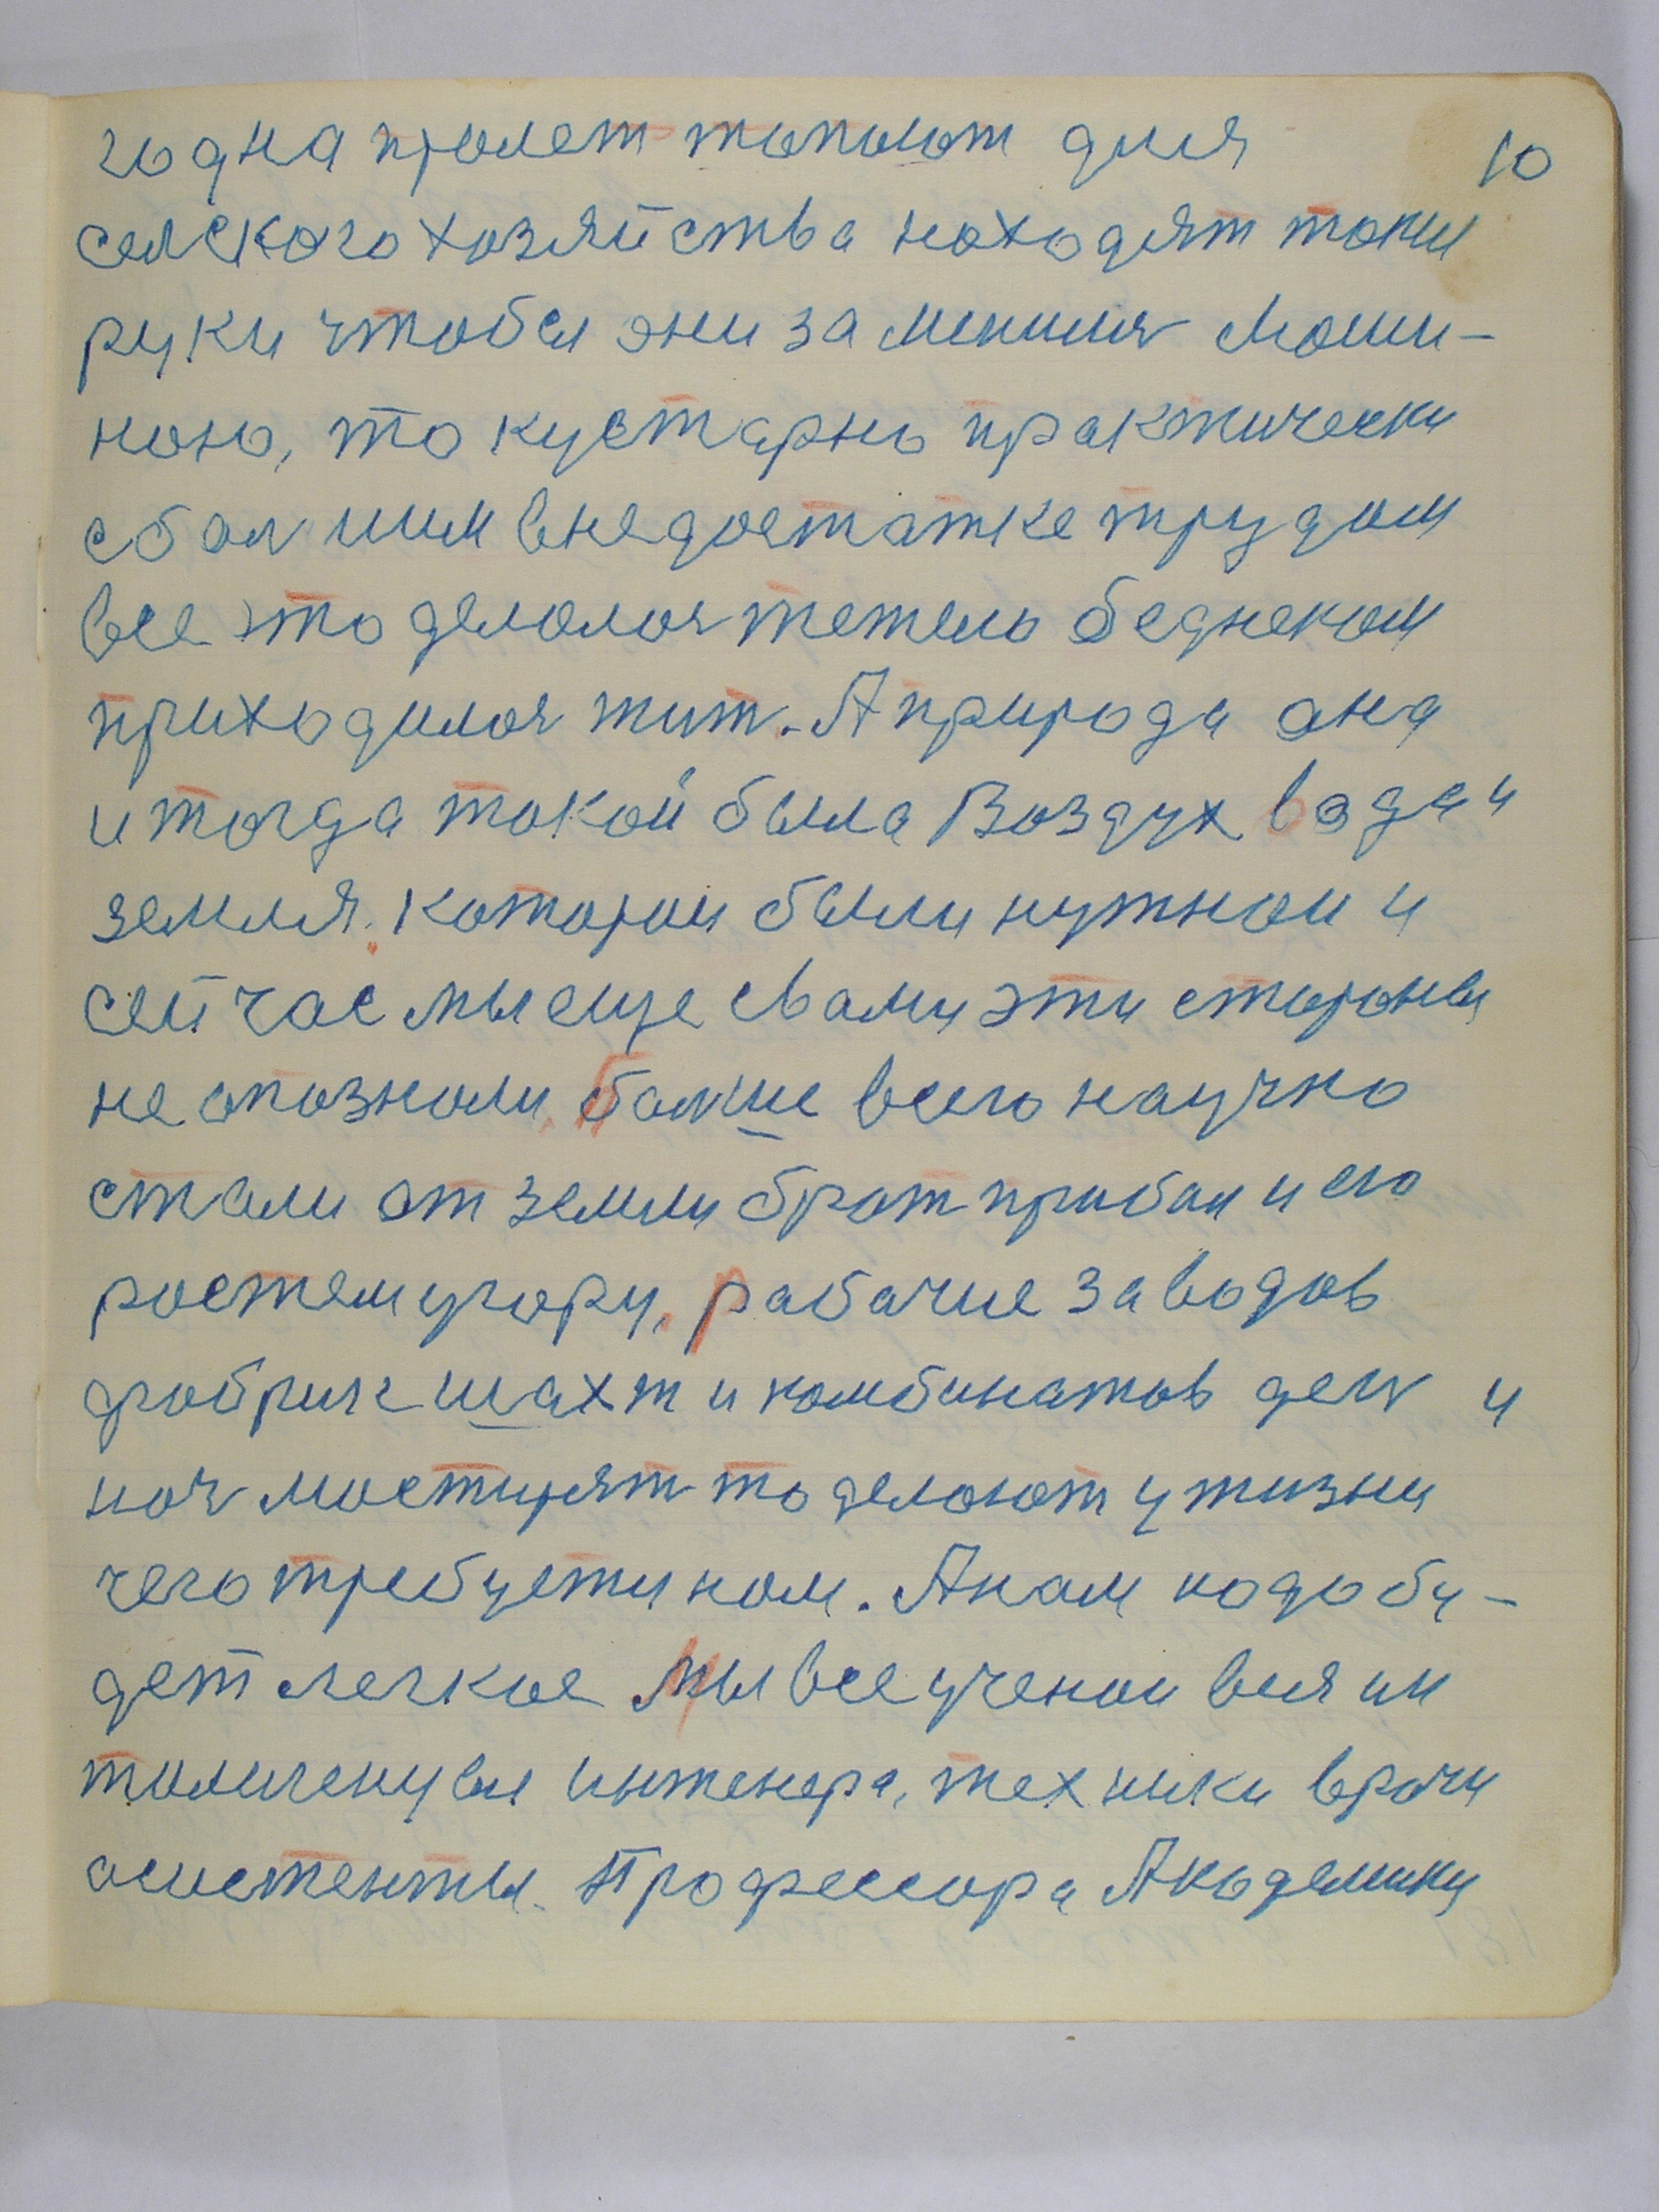 10
года пролет топчют для
селского хозяйства находят таких
руки чтобы они заменили маши-
ною, то кустарно практически
с болшим в недостатке трудом
все это делалос тежело беднеком
приходилос жит. А природа она
и тогда такой была Воздух вода и
земля. которои были нужнои и
сейчас мы еще с вами эти стороны
не опознали, болше всего научно
стали от земли брат прибои и его
ростем угору, рабочие заводов
фабрик шахт и комбинатов ден и
ноч мостирят то делают у жизни
чего требуети нам. А нам надо бу-
дет легкое мы все ученои вся ин
тилигенцыя инженера, техники врачи
асистенты. Профессора Академики